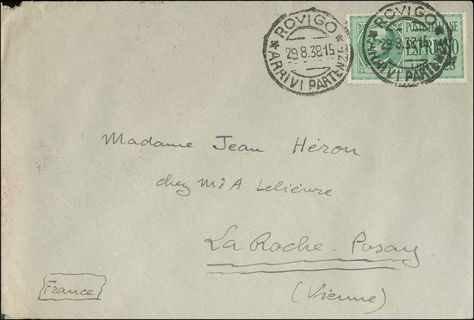 ROVIGO
29.8.38.15
ARRIVI PARTENZE
ROVIGO
29.8.38.15
ARRIVI PARTENZE
POSTE ITALIANE
ESPRESSO
Madame Jean Héron
chez M A Lelièvre
La Roche-Posay
(Vienne)
France